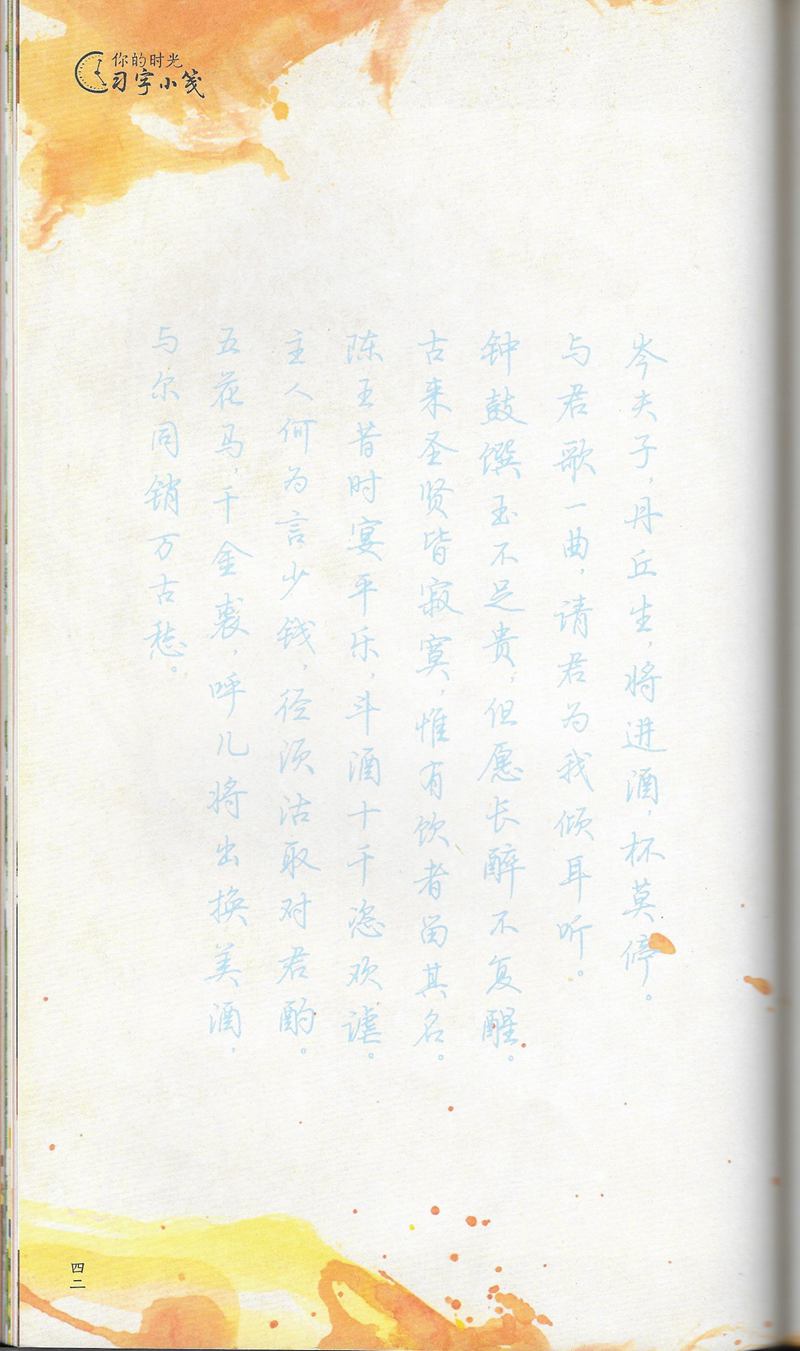 你的时光
习字小笺
岑夫子，丹丘生，将进酒，杯莫停。
与君歌一曲，请君为我倾耳听。
钟鼓馔玉不足贵，但愿长醉不复醒。
古来圣贤皆寂寞，惟有饮者留其名。
陈王昔时宴平乐，斗酒十千恣欢谑。
主人何为言少钱，径须沽取对君酌。
五花马，千金裘，呼儿将出换美酒，
与尔同销万古愁。
四二